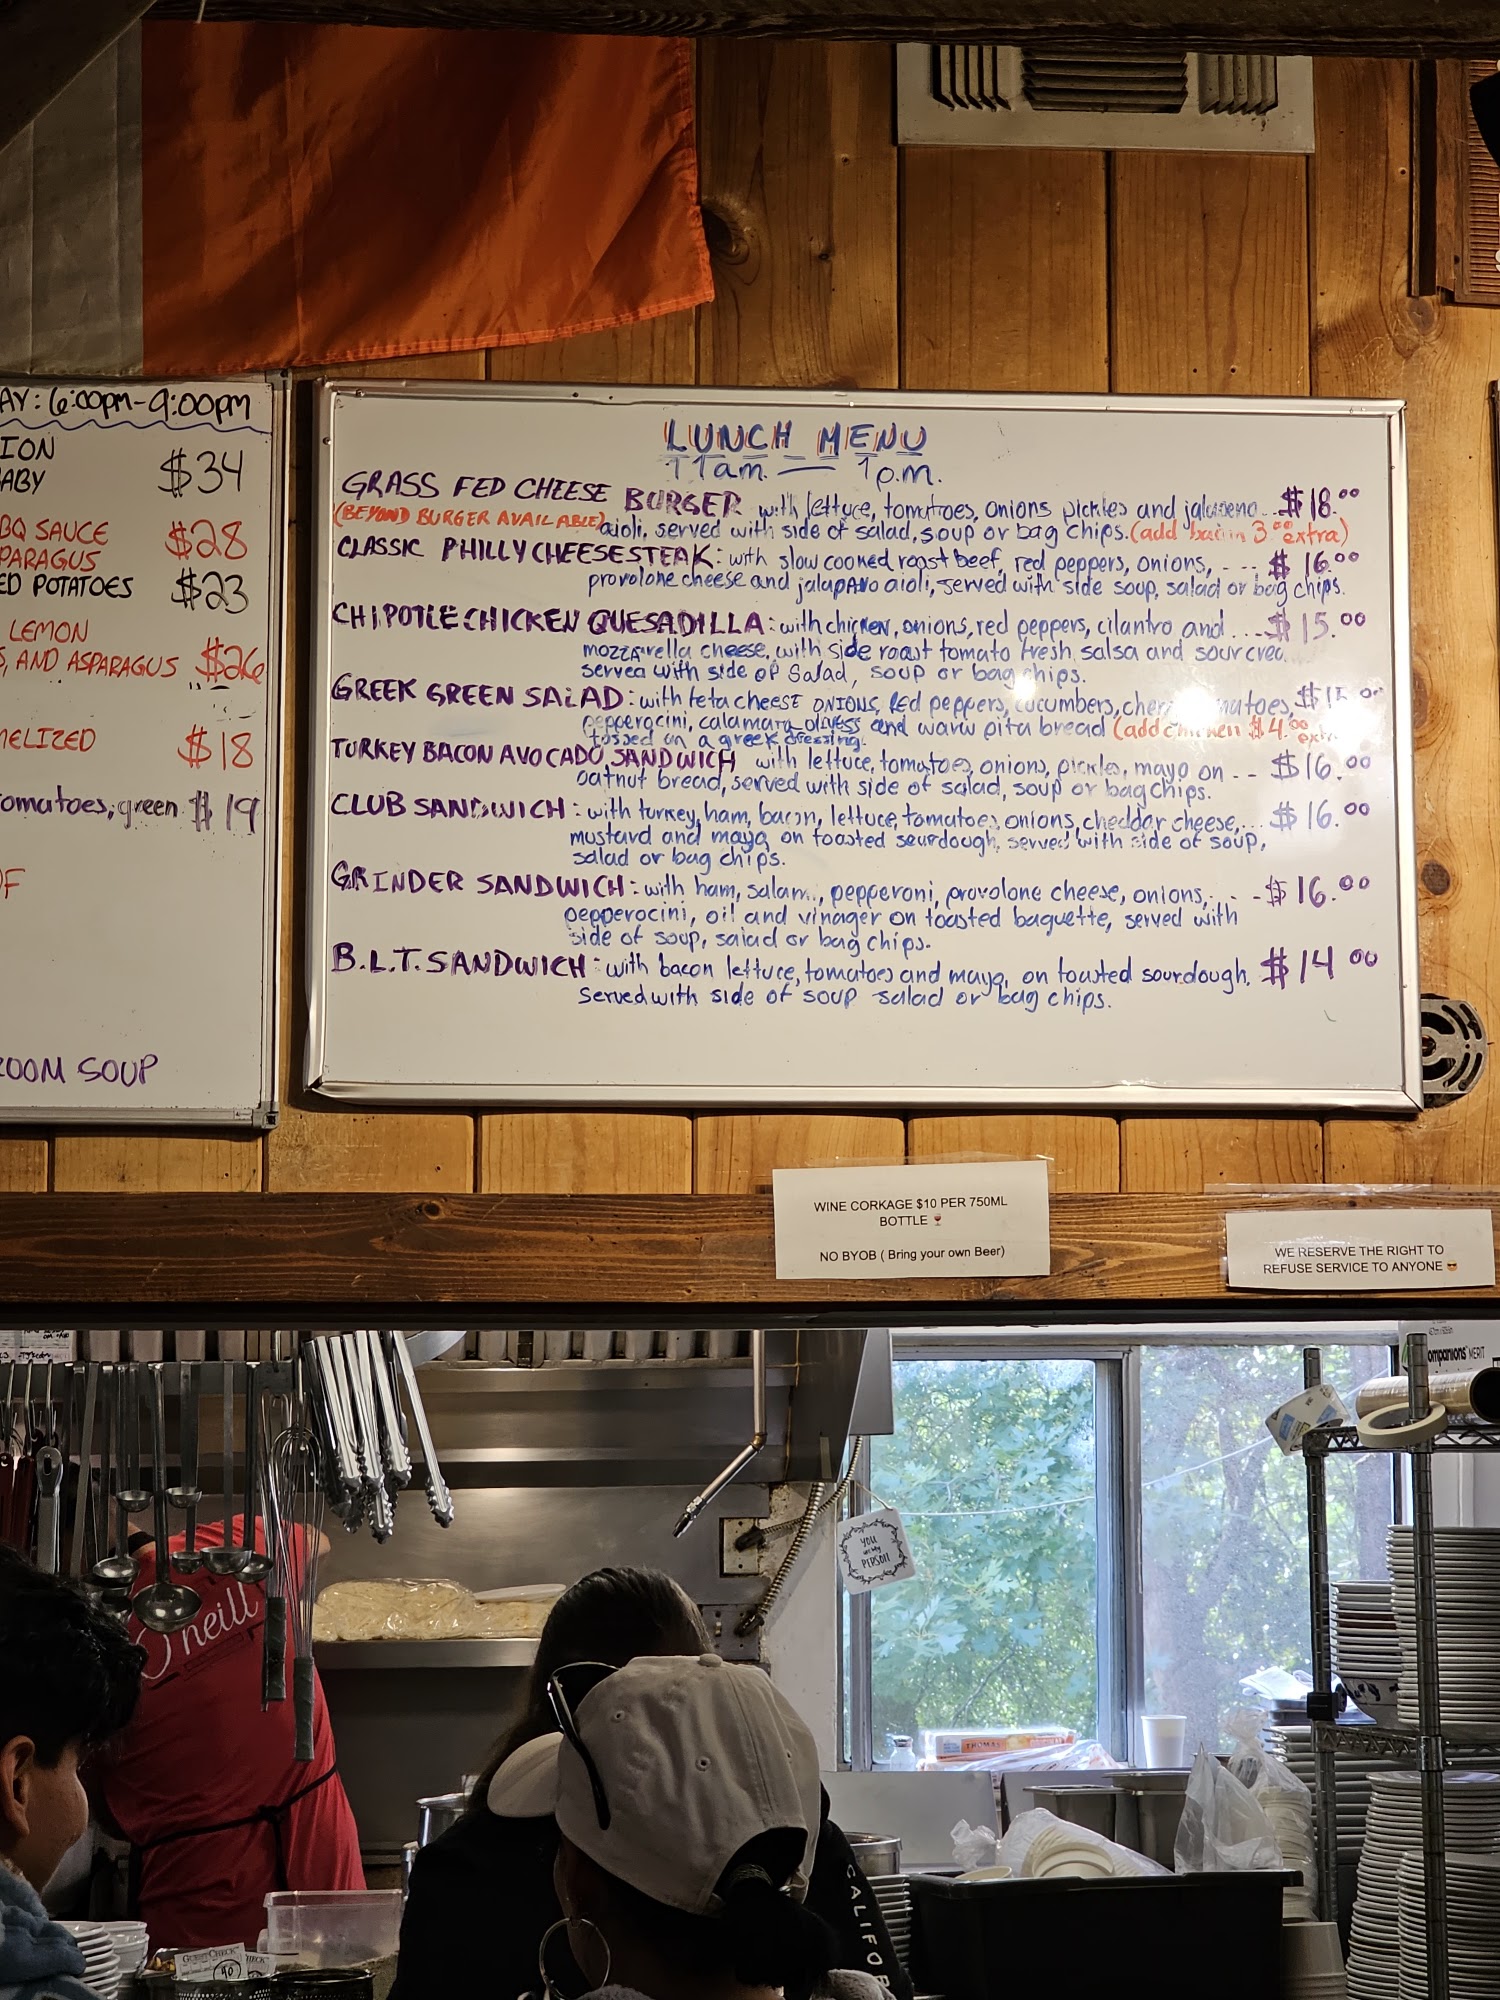 AY: 6:00pm-9:00pm
ION
ABY $34
BQ SAUCE $28
PARAGUS
ED POTATOES $23
LEMON
S, AND ASPARAGUS $26
MELIZED $18
omatoes, green $19
OF
ROOM SOUP
LUNCH MENU
11am. — 1p.m.
GRASS FED CHEESE BURGER with lettuce, tomatoes, onions pickles and jalapeno... $18.00
(BEYOND BURGER AVAILABLE) aioli, served with side of salad, soup or bag chips. (add bacon 3.00 extra)
CLASSIC PHILLY CHEESESTEAK: with slow cooked roast beef, red peppers, onions, - - - $16.00
provolone cheese and jalapano aioli, served with side soup, salad or bag chips.
CHIPOTLE CHICKEN QUESADILLA: with chicken, onions, red peppers, cilantro and .... $15.00
mozzarella cheese, with side roast tomato fresh salsa and sour crea
served with side of salad, soup or bag chips.
GREEK GREEN SALAD: with feta cheese ONIONS, RED peppers, cucumbers, cherry tomatoes,
pepperocini, calamara olivess and warw pita bread (add chicken $4.00 extra
tossed on a greek dressing.
TURKEY BACON AVOCADO SANDWICH with lettuce, tomatoes, onions, pickles, mayo on - - $16.00
oatnut bread, served with side of salad, soup or bag chips.
CLUB SANDWICH: with turkey, ham, bacon, lettuce, tomatoes, onions, cheddar cheese, ... $16.00
mustard and mayo, on toasted sourdough, served with side of soup,
salad or bag chips.
GRINDER SANDWICH: with ham, salami, pepperoni, provolone cheese, onions, - - - $16.00
pepperocini, oil and vinager on toasted baguette, served with
side of soup, salad or bag chips.
B.L.T. SANDWICH: with bacon lettuce, tomatoes and mayo, on toasted sourdough, $14.00
served with side of soup salad or bag chips.
WINE CORKAGE $10 PER 750ML
BOTTLE 🍷
NO BYOB ( Bring your own Beer)
WE RESERVE THE RIGHT TO
REFUSE SERVICE TO ANYONE 😎
ompanions' MERIT
YOU
are my
PERSON
O'neill
THOMAS
CALIFOR
GUEST CHECK
HECK
40